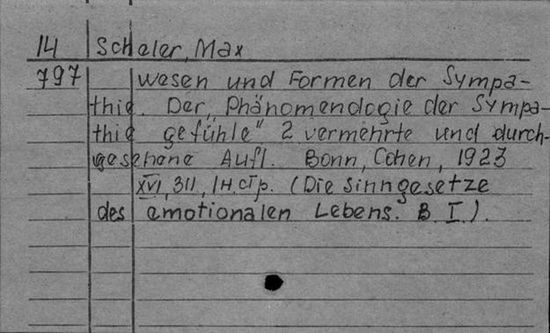 14 Scheler, Max
797 Wesen und Formen der Sympa-
thie. Der „Phänomenologie der Sympa-
thie gefühle" 2 vermehrte und durch-
gesehene Aufl. Bonn, Cohen, 1923
XVI, 311, 1 H. стр. (Die Sinngesetze
des emotionalen Lebens. B. I.).